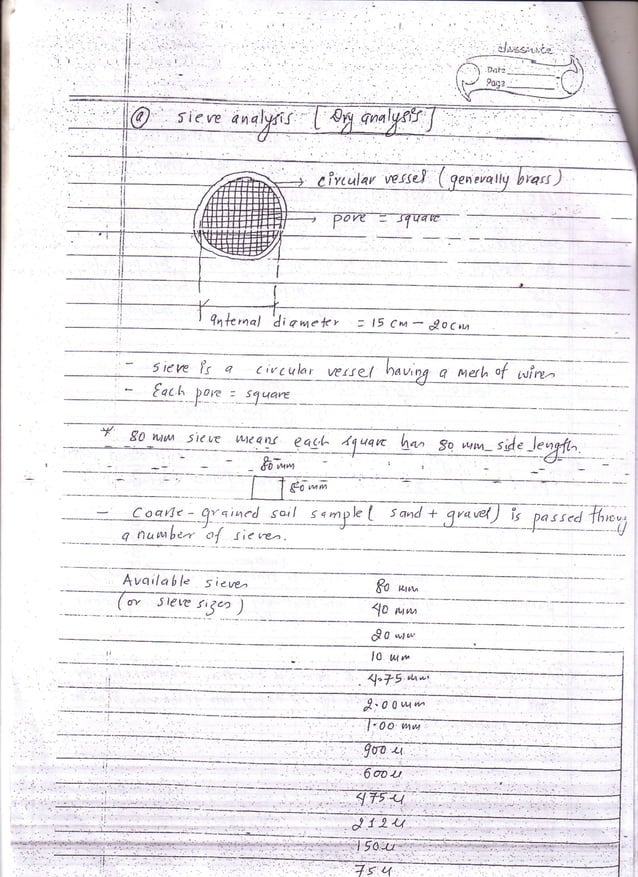 classmate
Date
Page
(a) Sieve analysis [Dry analysis]
circular vessel (generally brass)
pore = square
internal diameter = 15 cm - 20 cm
- Sieve is a circular vessel having a mesh of wires
- Each pore = square
* 80 mm sieve means each square has 80 mm side length.
80 mm
80 mm
- Coarse-grained soil sample (sand + gravel) is passed throug
a number of sieves.
Available sieves 80 mm
(or sieve sizes) 40 mm
20 mm
10 mm
4.75 mm
2.00 mm
1.00 mm
900 μ
600 μ
475 μ
212 μ
150 μ
75 μ